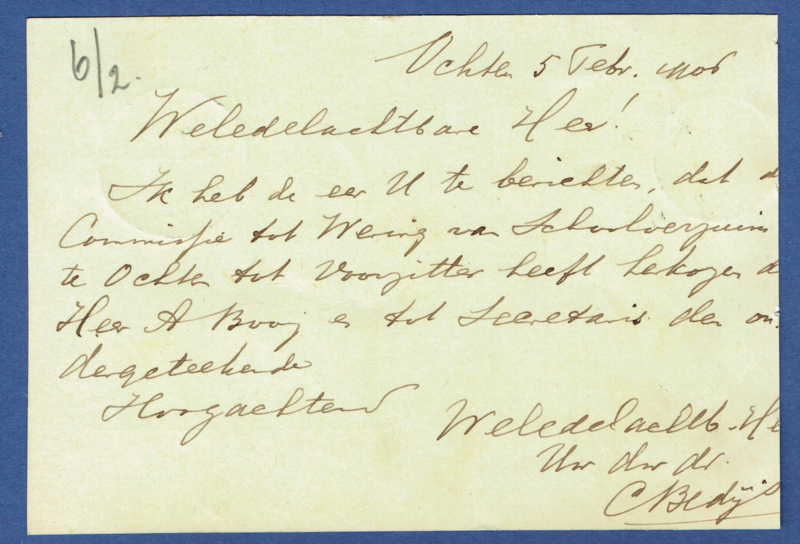 6/2.
Ochten 5 Febr. 1906
Weledelachtbare Heer!
Ik heb de eer U te berichten, dat d
Commissie tot Wering van Schoolverzuim
te Ochten tot Voorzitter heeft gekozen d
Heer A Booij en tot Secretaris den on
dergeteekende
Hoogachtend
Weledelachtb. He
Uw dw dr.